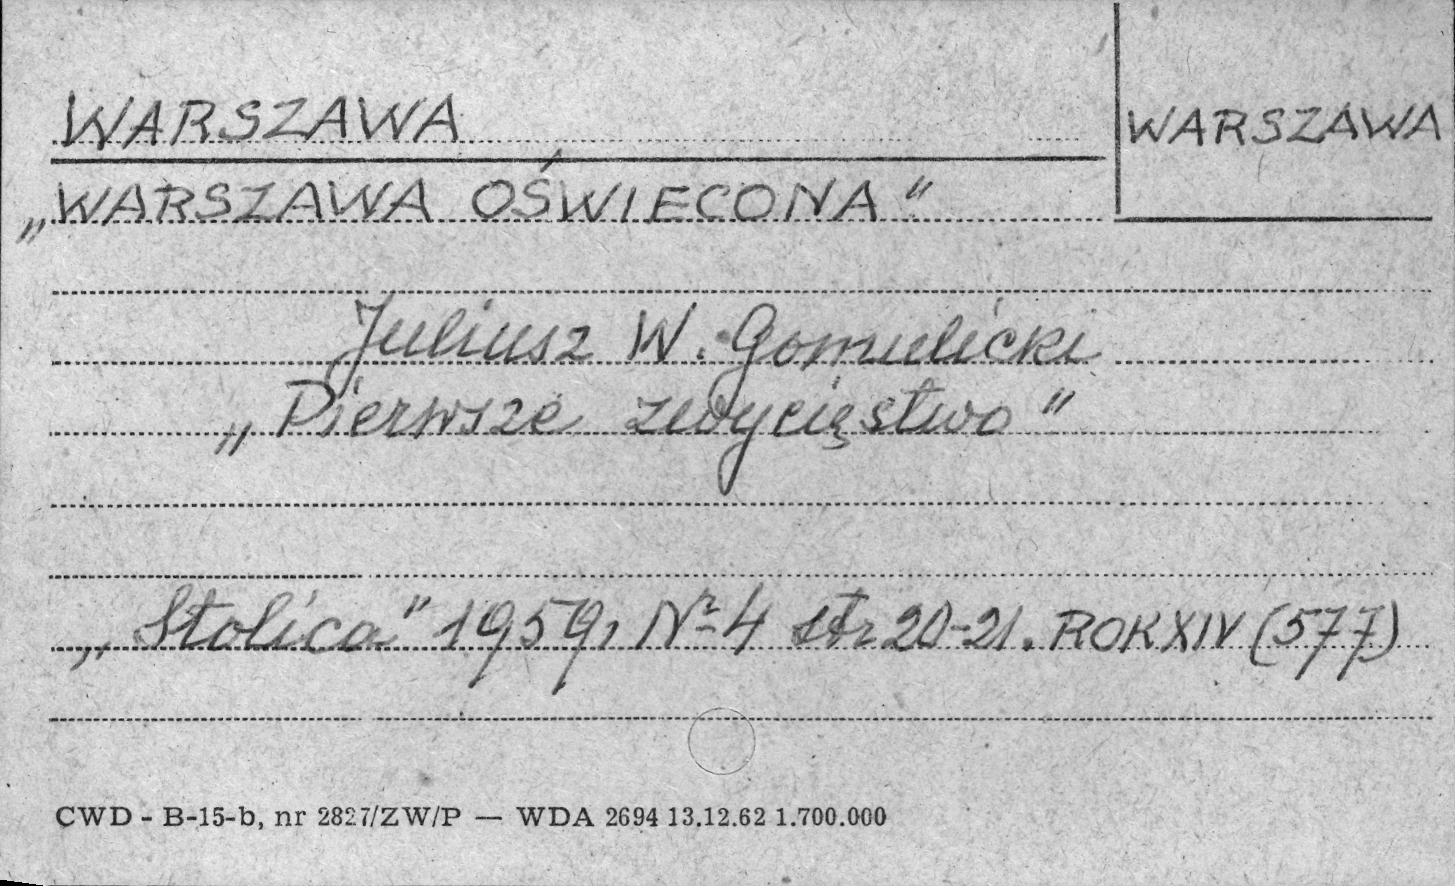 WARSZAWA
WARSZAWA
„WARSZAWA OŚWIECONA"
Juliusz W. Gomulicki
„Pierwsze zwycięstwo"
„Stolica" 1959, Nr 4 str 20-21. ROK XIV (577)
CWD - B-15-b, nr 2827/ZW/P — WDA 2694 13.12.62 1.700.000